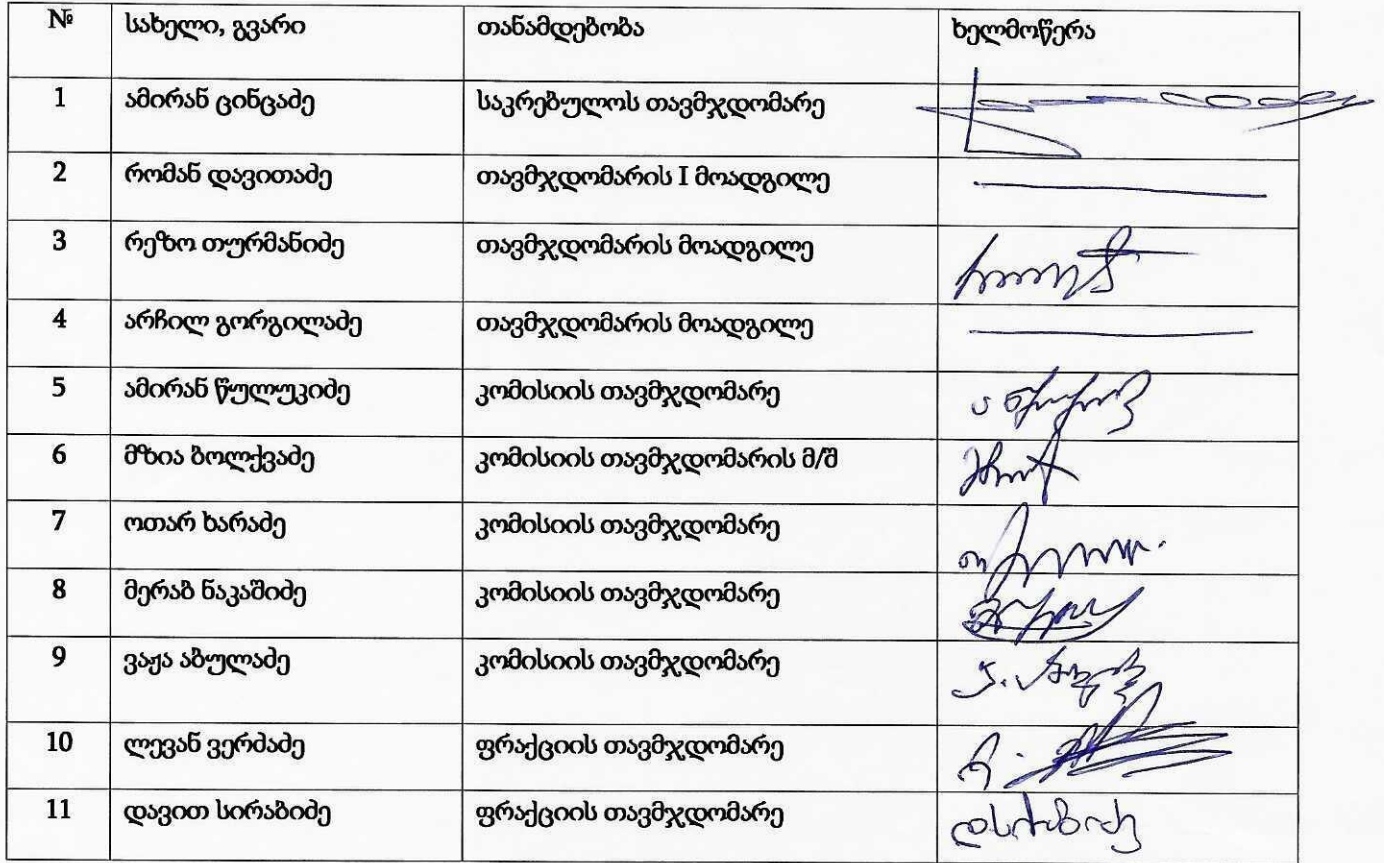 № სახელი, გვარი თანამდებობა ხელმოწერა
1 ამირან ცინცაძე საკრებულოს თავმჯდომარე
2 რომან დავითაძე თავმჯდომარის I მოადგილე
3 რეზო თურმანიძე თავმჯდომარის მოადგილე
4 არჩილ გორგილაძე თავმჯდომარის მოადგილე
5 ამირან წულუკიძე კომისიის თავმჯდომარე
6 მზია ბოლქვაძე კომისიის თავმჯდომარის მ/შ
7 ოთარ ხარაძე კომისიის თავმჯდომარე
8 მერაბ ნაკაშიძე კომისიის თავმჯდომარე
9 ვაჟა აბულაძე კომისიის თავმჯდომარე
10 ლევან ვერძაძე ფრაქციის თავმჯდომარე
11 დავით სირაბიძე ფრაქციის თავმჯდომარე